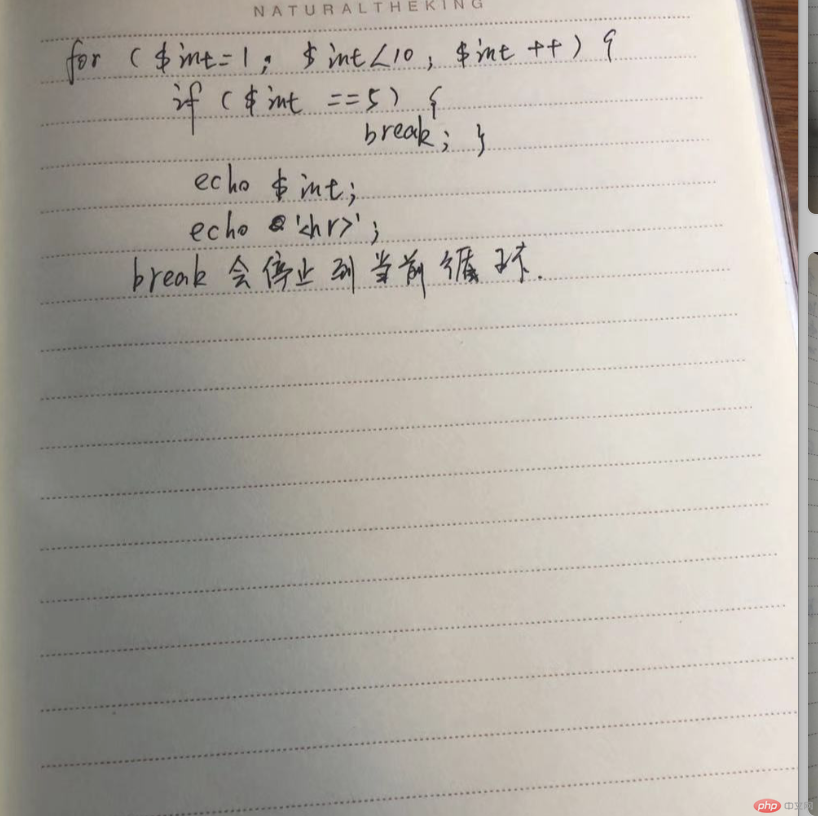 NATURALTHEKING
for ($int=1; $int<10; $int ++) {
if ($int ==5) {
break; }
echo $int;
echo '<hr>';
break 会停止到当前循环.
php 中文网